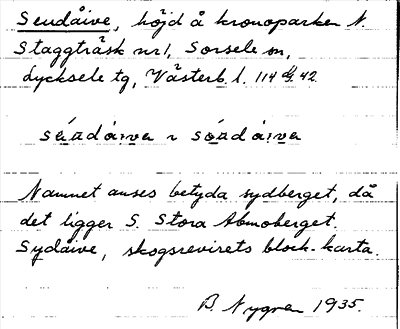 Seudåive, höjd å kronoparken N.
Staggträsk nr 1, Sorsele sn,
Lycksele tg, Västerb. l. 114 42
Namnet anses betyda sydberget, då
det ligger S. Stora Abmoberget.
Sydåive, skogsrevirets block-karta.
B. Nygren 1935.